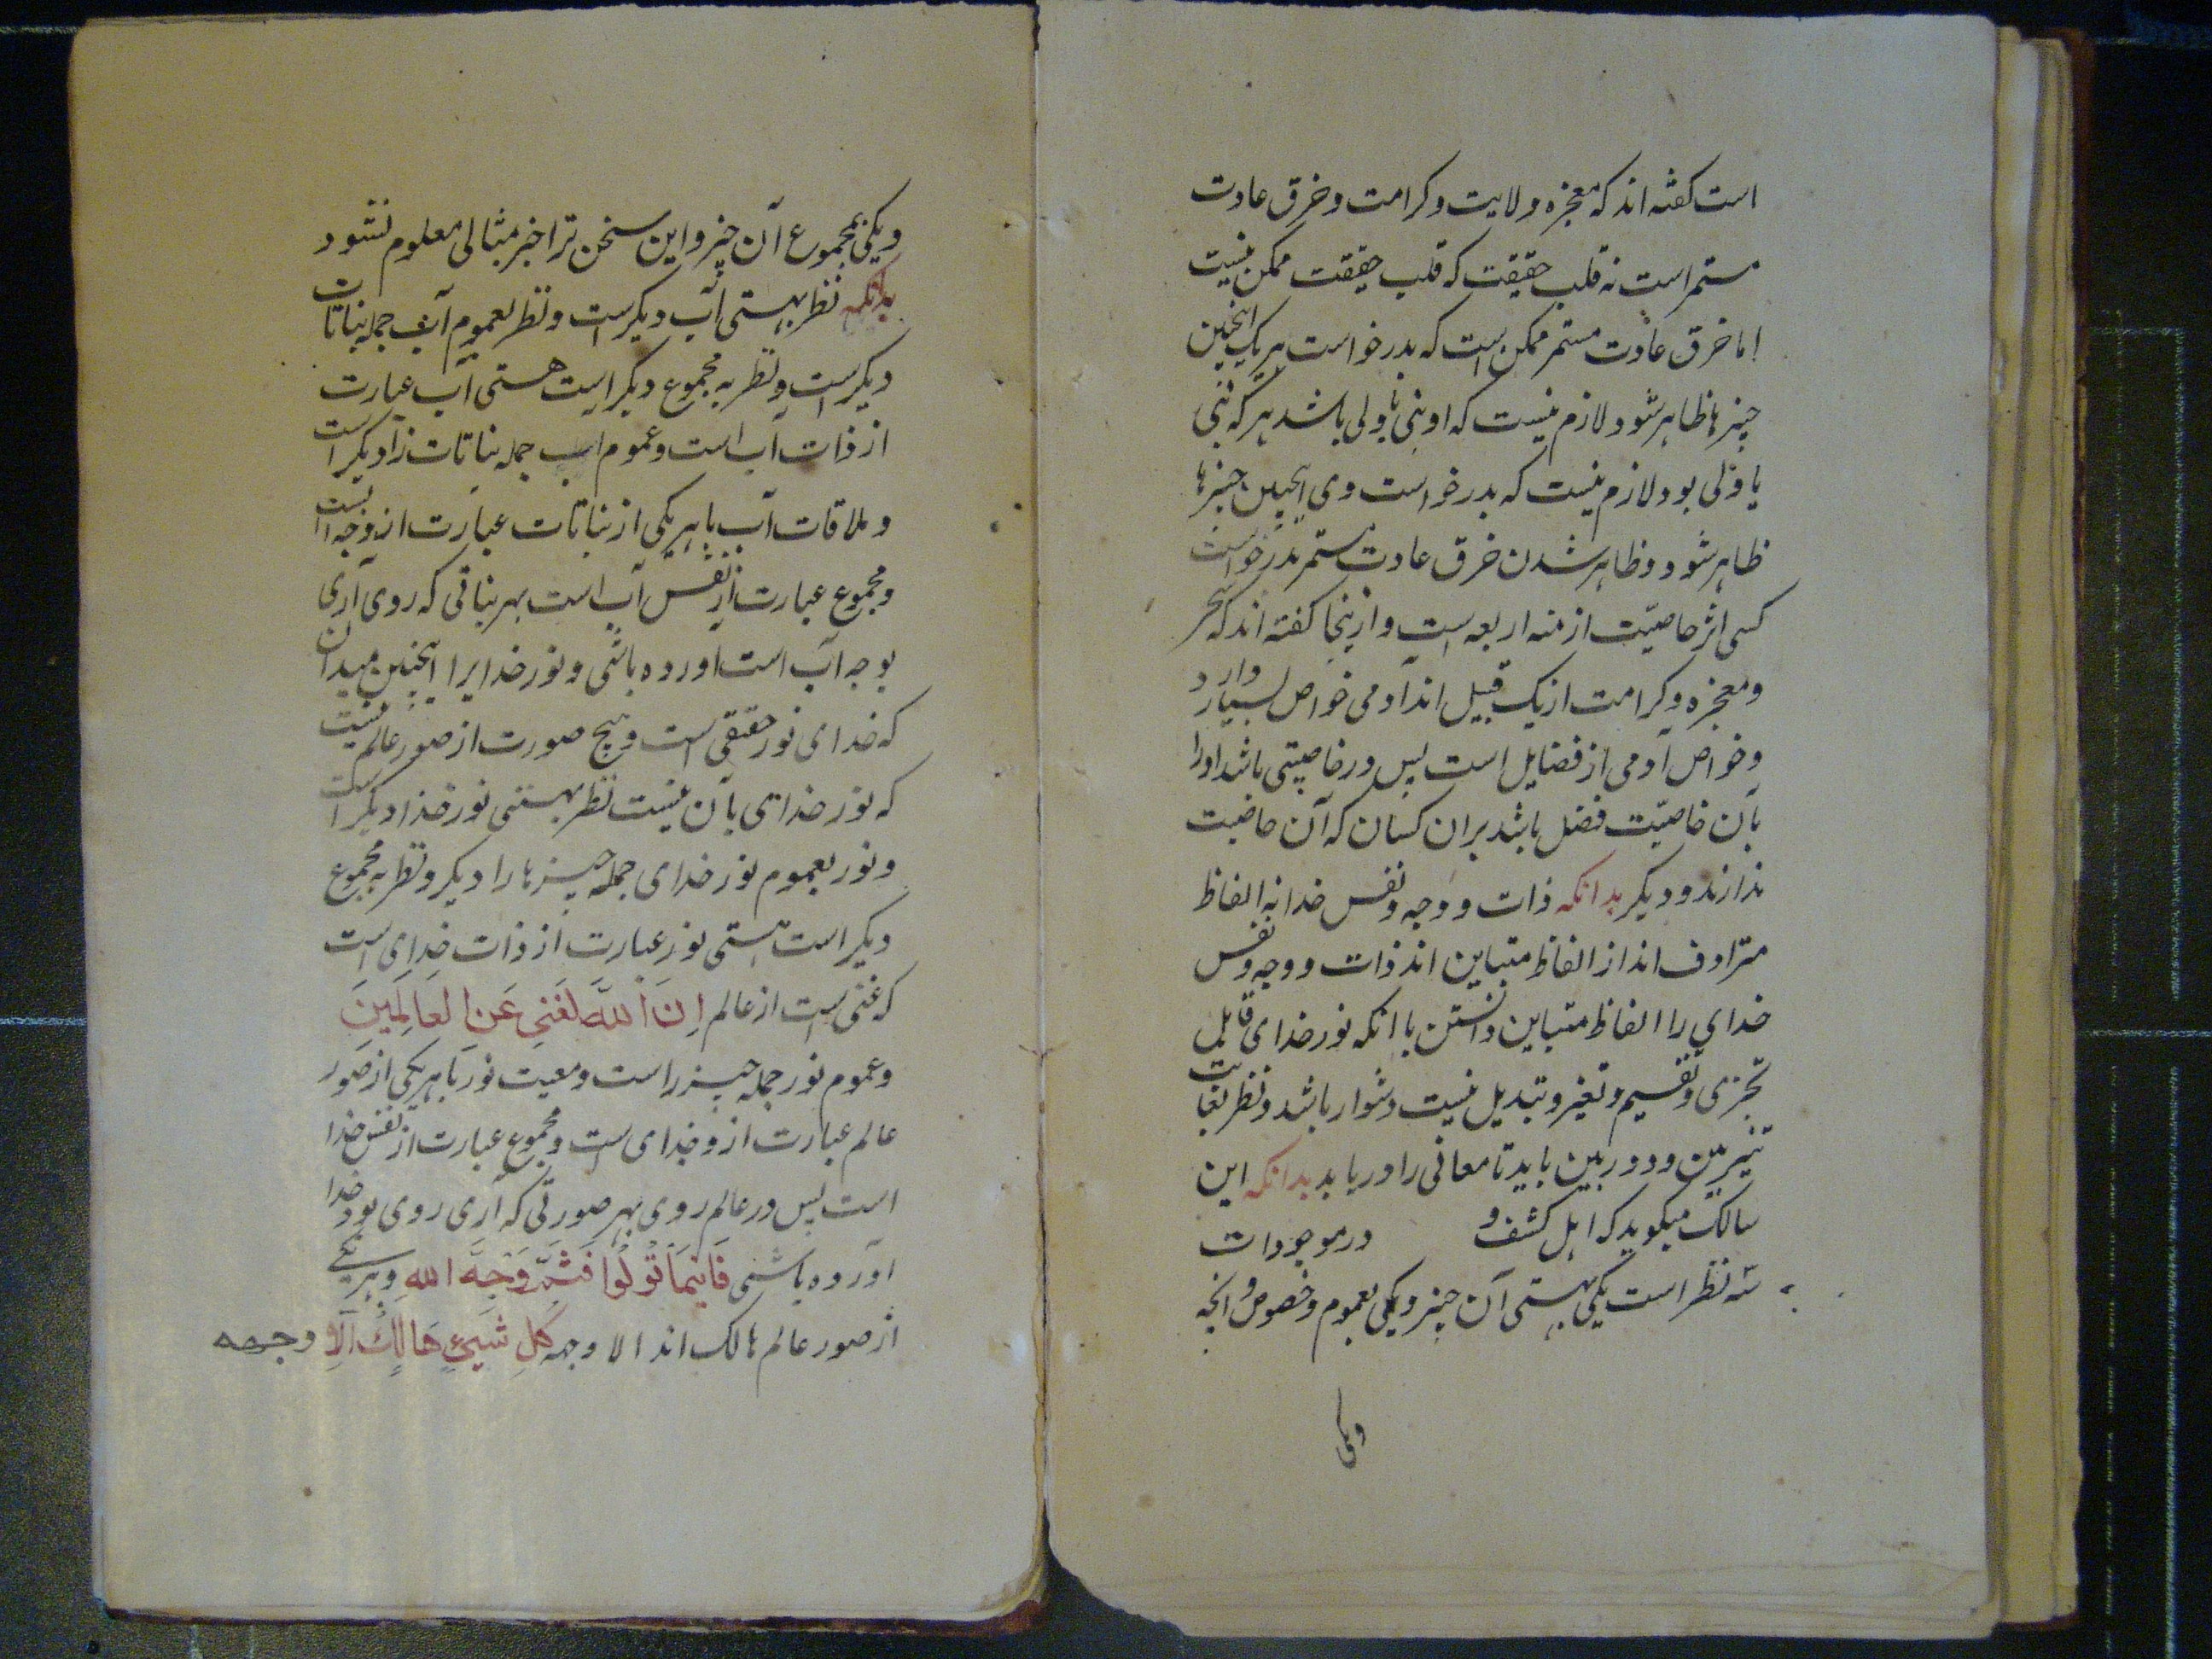 است کفته اند که معجزه ولایت و کرامت و خرق عادت
مستمر است نه قلب حقیقت که قلب حقیقت ممکن نیست
اما خرق عادت مستمر ممکن است که بدرخواست هر یک اینچنین
چیزها ظاهر شود لازم نیست که او نبی یا ولی باشد هر که نبی
یا ولی بود لازم نیست که بدرخواست وی اینچنین چیزها
ظاهر شود و ظاهر شدن خرق عادت مستمر بدرخواست
کسی اثر خاصیّت ازمنه اربعه است و ازینجا کفته اند که سحر
و معجزه و کرامت از یک قبیل اند آدمی خواص بسیار دارد
و خواص آدمی از فضایل است پس در خاصیتی باشد او را
بآن خاصیّت فضل باشد بران کسان که آن خاصیت
ندارند و دیکر بدانکه ذات و وجه و نفس خدا نه الفاظ
مترادف اند از الفاظ متباین اند ذات و وجه و نفس
خدای را الفاظ متباین دانستن با انکه نور خدای قابل
تجزی و تقسیم و تغیر و تبدیل نیست دشوار باشد و نظر بغایت
تیزبین و دوربین باید تا معانی را دریابد بدانکه این
سالک میکوید که اهل کشف و در موجودات
سه نظر است یکی بهستی آن چیز و یکی بعموم و خصوص و انچه
ویکی
ویکی بمجموع آن چیز و این سخن ترا جز مثالی معلوم نشود
بدانکه نظر بهستی آب دیکرست و نظر بعموم آب جمله نباتات
دیکرست و نظر به مجموع دیکر است هستی آب عبارت
از ذات آب است و عموم آب جمله نباتات را دیکر است
و ملاقات آب با هر یکی از نباتات عبارت از وجه است
و مجموع عبارت از نفس آب است بهر نباتی که روی آری
بوجه آب است آورده باشی و نور خدایرا اینچنین میدان
که خدای نور حقیقی است و هیچ صورت از صور عالم نیست
که نور خدای با آن نیست نظر بهستی نور خدا دیکر است
و نور بعموم نور خدای جمله چیزها را دیکر و نظر به مجموع
دیکر است هستی نور عبارت از ذات خدای است
که غنی است از عالم اِنَ اللّهَ لَغَنِی عَنِ العَالَمِینَ
و عموم نور جمله چیز راست و معیت نور با هر یکی از صور
عالم عبارت از وجه خدای است و مجموع عبارت از نفس خدا
است پس در عالم روی بهر صورتی که آری روی بوجه خدا
آورده باشی فَاَینَمَا تُوَلُّوا فَثَمَّ وَجهُ اللهِ و هر یکی
از صور عالم هالک اند الا وجهه کُل شَیئٍ هَالِکٌ اِلَّا وجهه